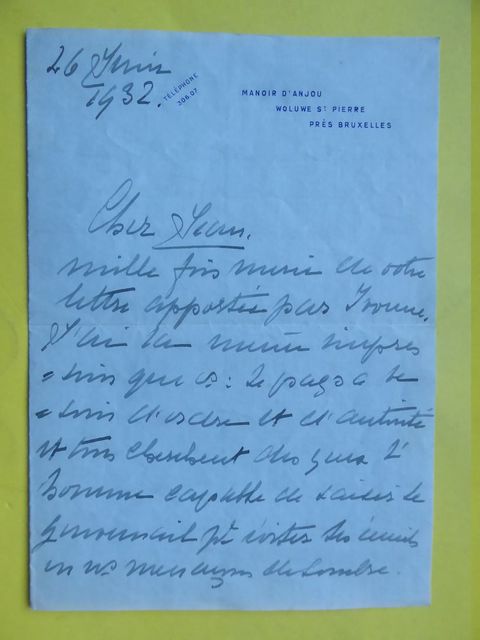 26 Juin
1932.
TÉLÉPHONE
306.07
MANOIR D'ANJOU
WOLUWE ST PIERRE
PRÈS BRUXELLES
Cher Jean.
mille fois merci de votre
lettre apportée par Yvonne.
J'ai la même impres
=sion que vs : le pays a be
=soin d'ordre et d'autorité
et tous cherchent des yeux l'
homme capable de saisir le
gouvernail pr éviter les écueils
où ns menaçons de sombrer.